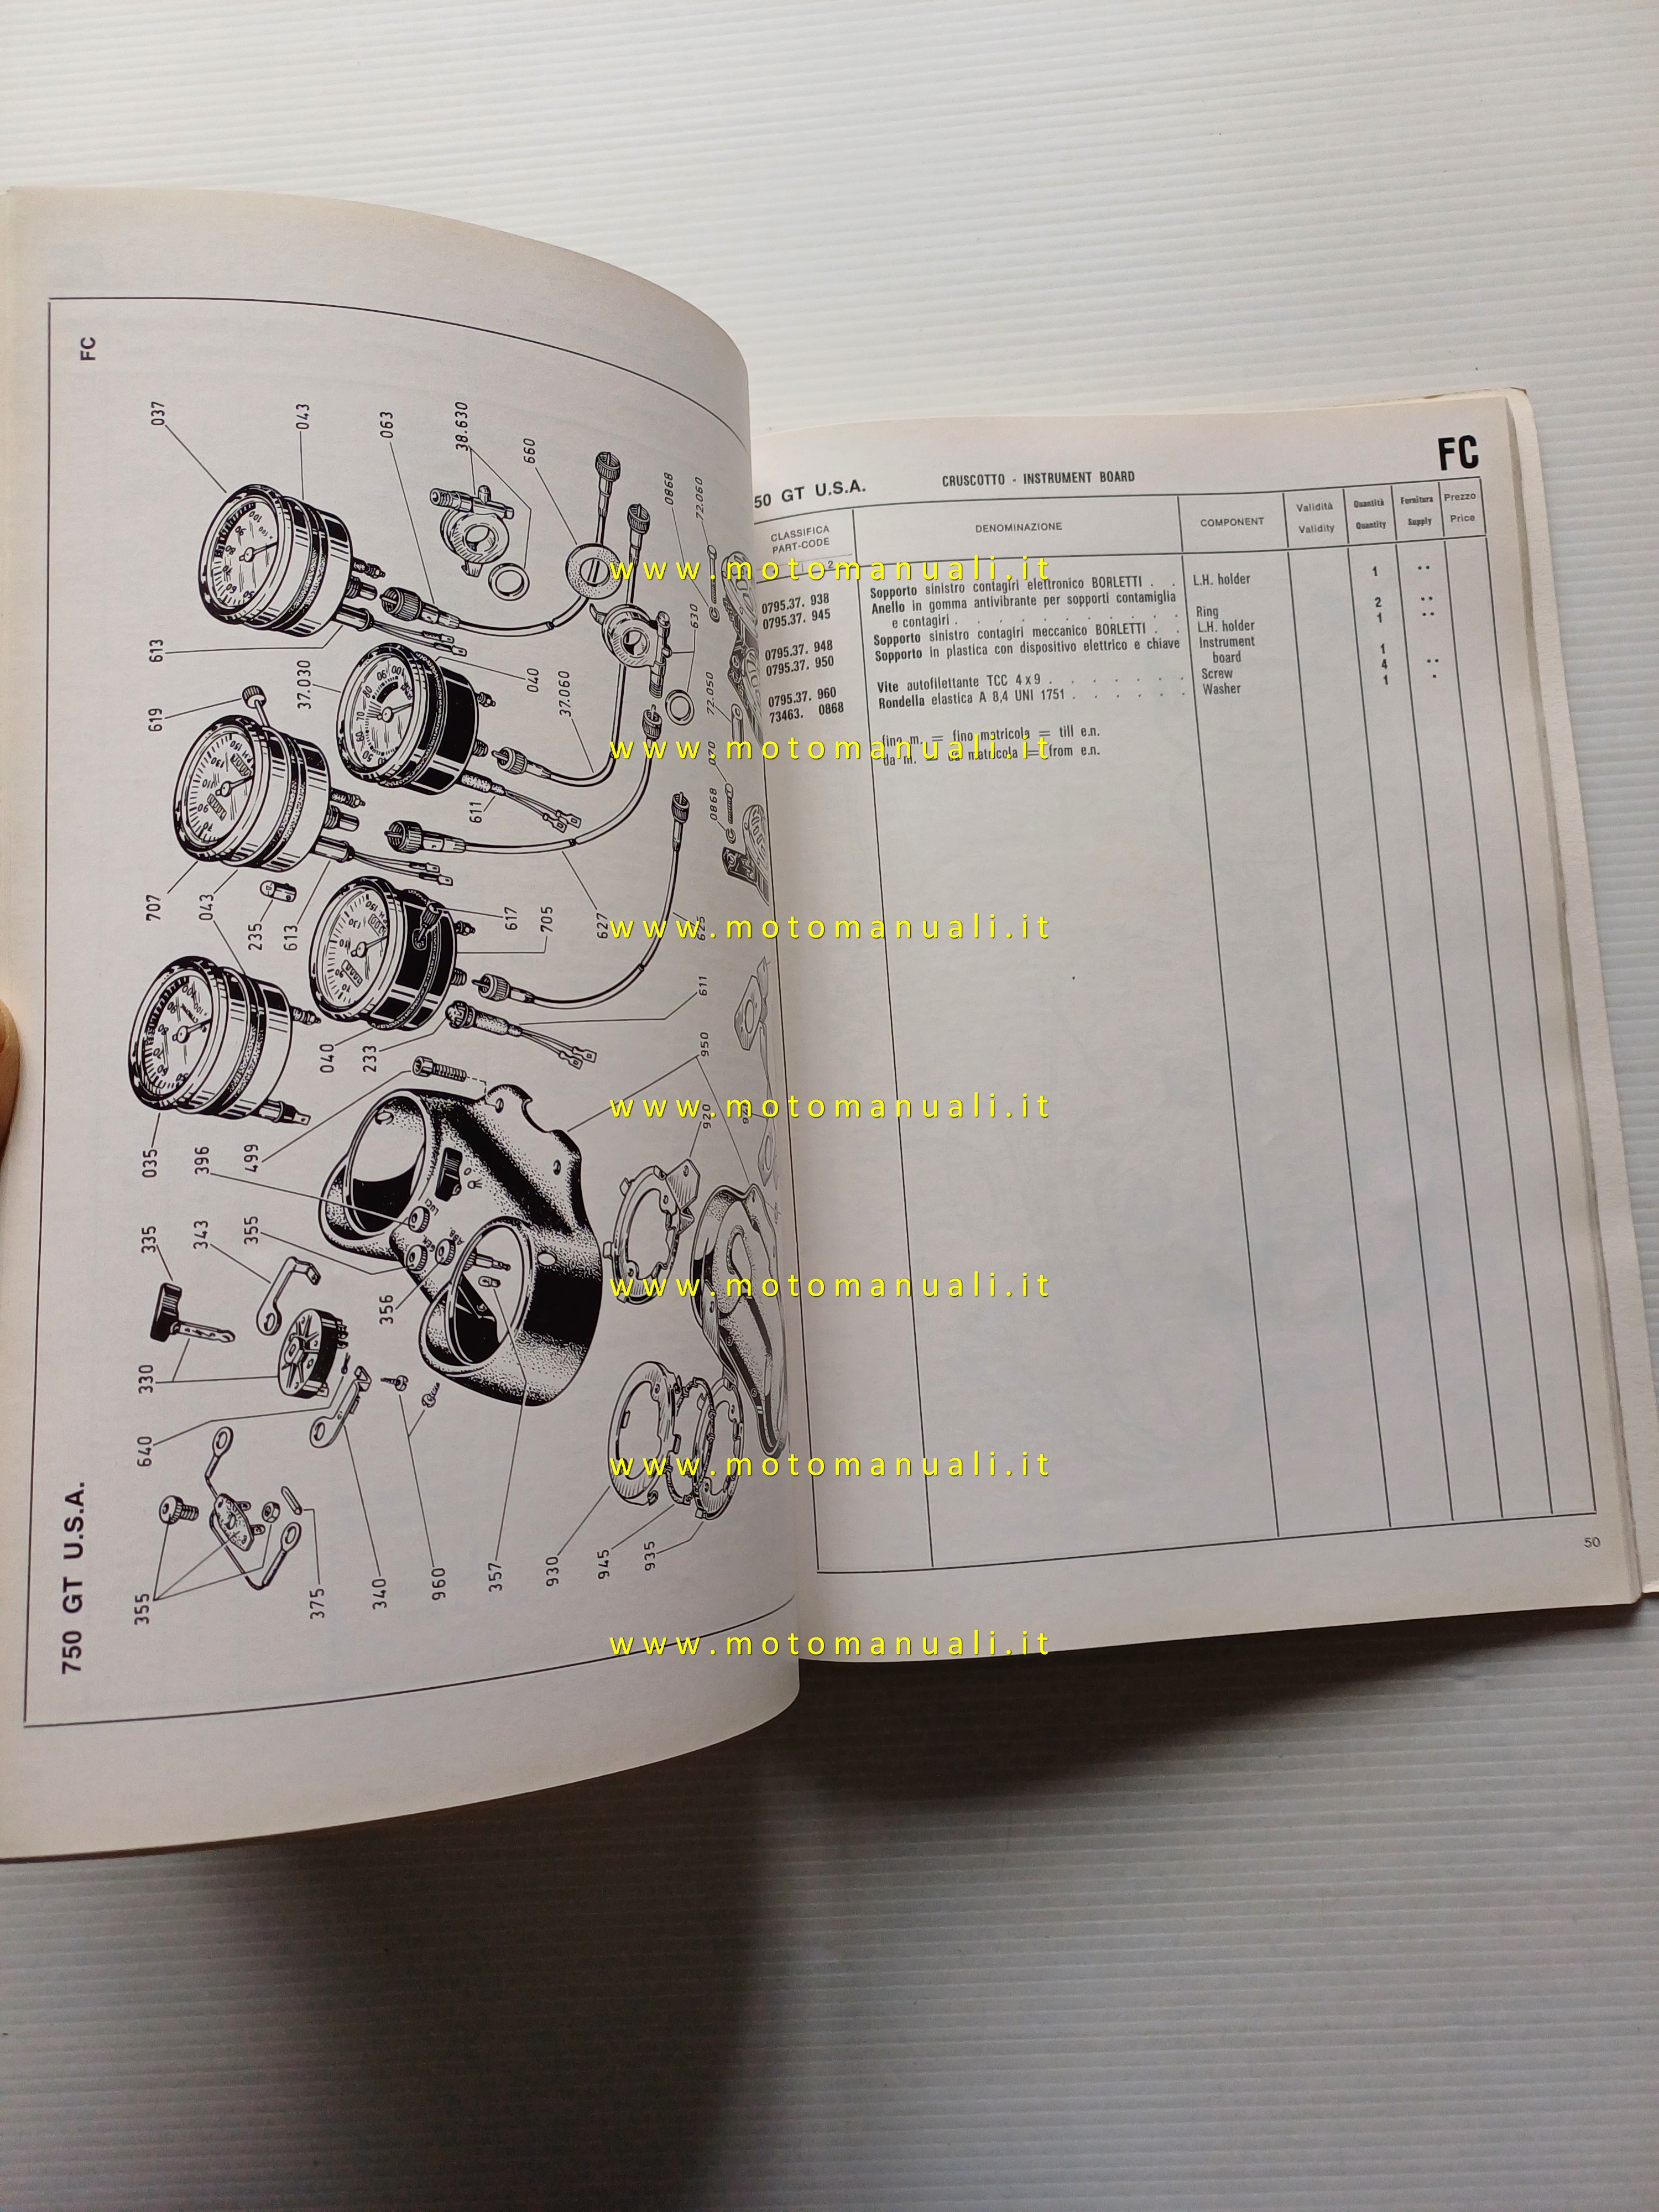 750 GT U.S.A.
FC
037
043
063
38.630
660
0868
72.060
613
619
37.030
040
37.060
630
72.050
070
0868
611
707
043
235
613
617
705
627
625
040
233
611
950
035
396
499
920
335
343
355
356
330
640
355
375
340
960
357
930
945
935
50 GT U.S.A.
CRUSCOTTO - INSTRUMENT BOARD
FC
CLASSIFICA
PART-CODE
DENOMINAZIONE
COMPONENT
Validità
Validity
Quantità
Quantity
Fornitura
Supply
Prezzo
Price
2
0795.37. 938 Sopporto sinistro contagiri elettronico BORLETTI . . L.H. holder 1 ..
0795.37. 945 Anello in gomma antivibrante per sopporti contamiglia
e contagiri . . . . . . . . . . Ring 2 ..
0795.37. 948 Sopporto sinistro contagiri meccanico BORLETTI . . L.H. holder 1 ..
0795.37. 950 Sopporto in plastica con dispositivo elettrico e chiave Instrument
board 1
0795.37. 960 Vite autofilettante TCC 4x9 . . . . . . . Screw 4 ..
73463. 0868 Rondella elastica A 8,4 UNI 1751 . . . . . . Washer 1 .
fino m. = fino matricola = till e.n.
da m. = da matricola = from e.n.
50
www.motomanuali.it
www.motomanuali.it
www.motomanuali.it
www.motomanuali.it
www.motomanuali.it
www.motomanuali.it
www.motomanuali.it